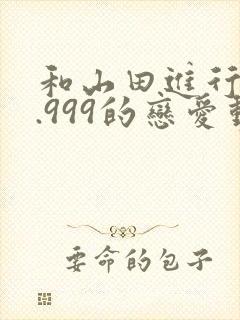 和山田進行
.999的戀愛
要命的包子